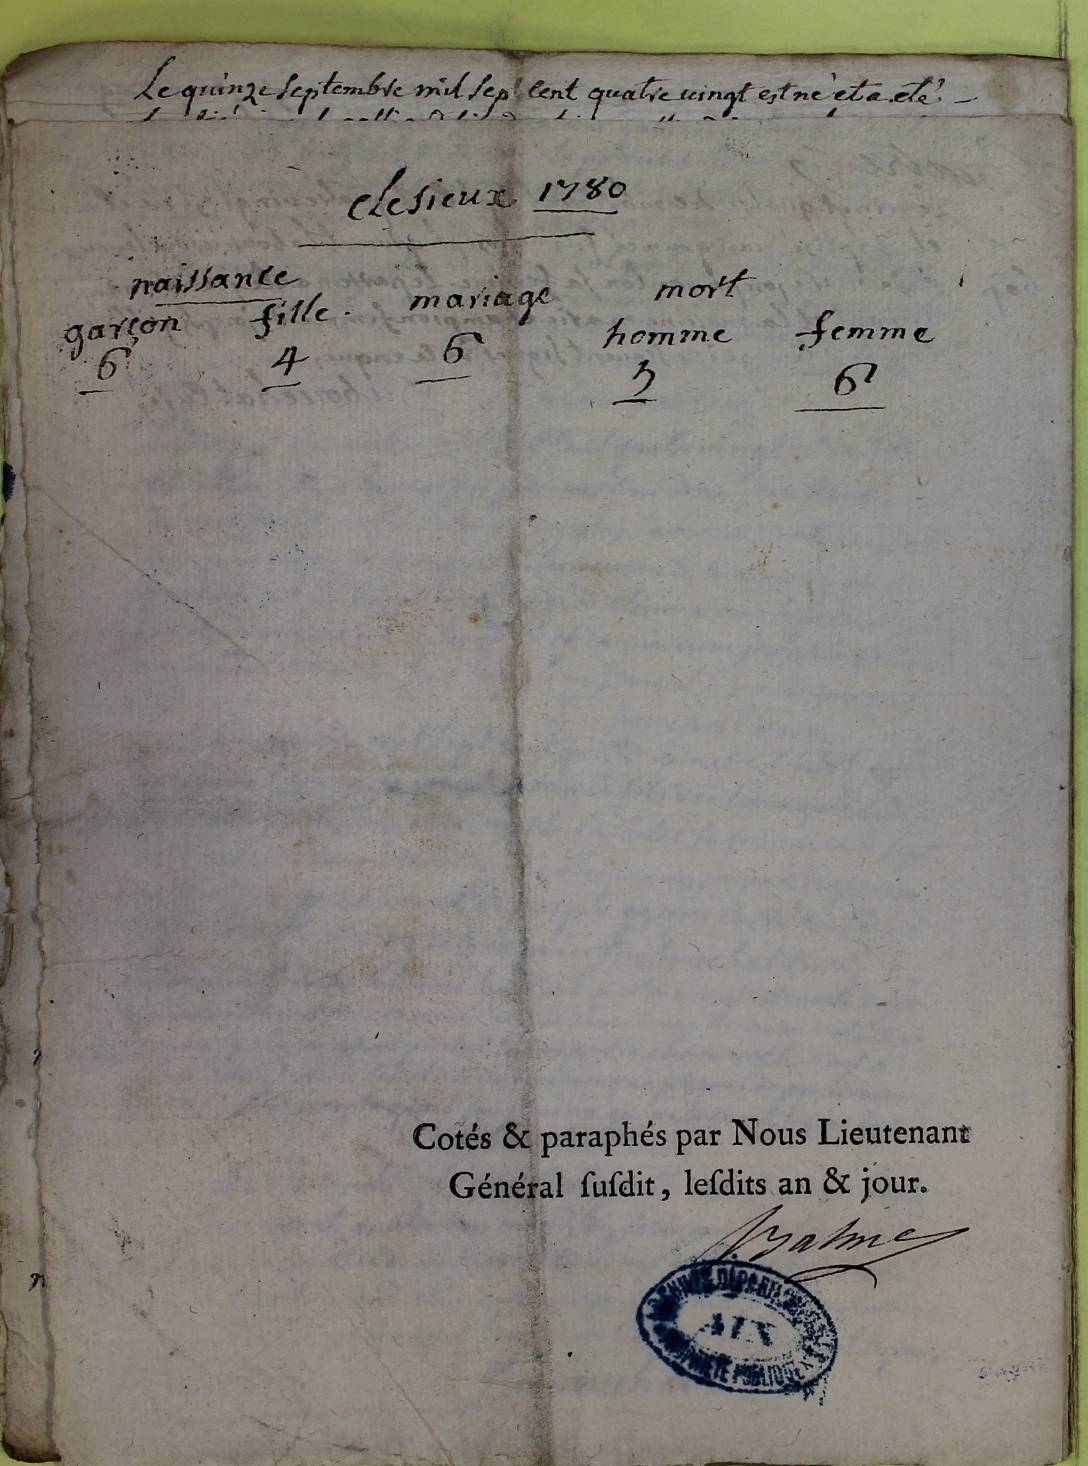 Le quinze septembre mil sept cent quatre vingt est né et a été
Clesieux 1780
naissance
garçon fille. mariage mort
homme femme
6 4 6 3 6
Cotés & paraphés par Nous Lieutenant
Général ſuſdit, leſdits an & jour.
Balme
ARCHIVES DÉPARTEMENTALES
AIN
PROPRIÉTÉ PUBLIQUE